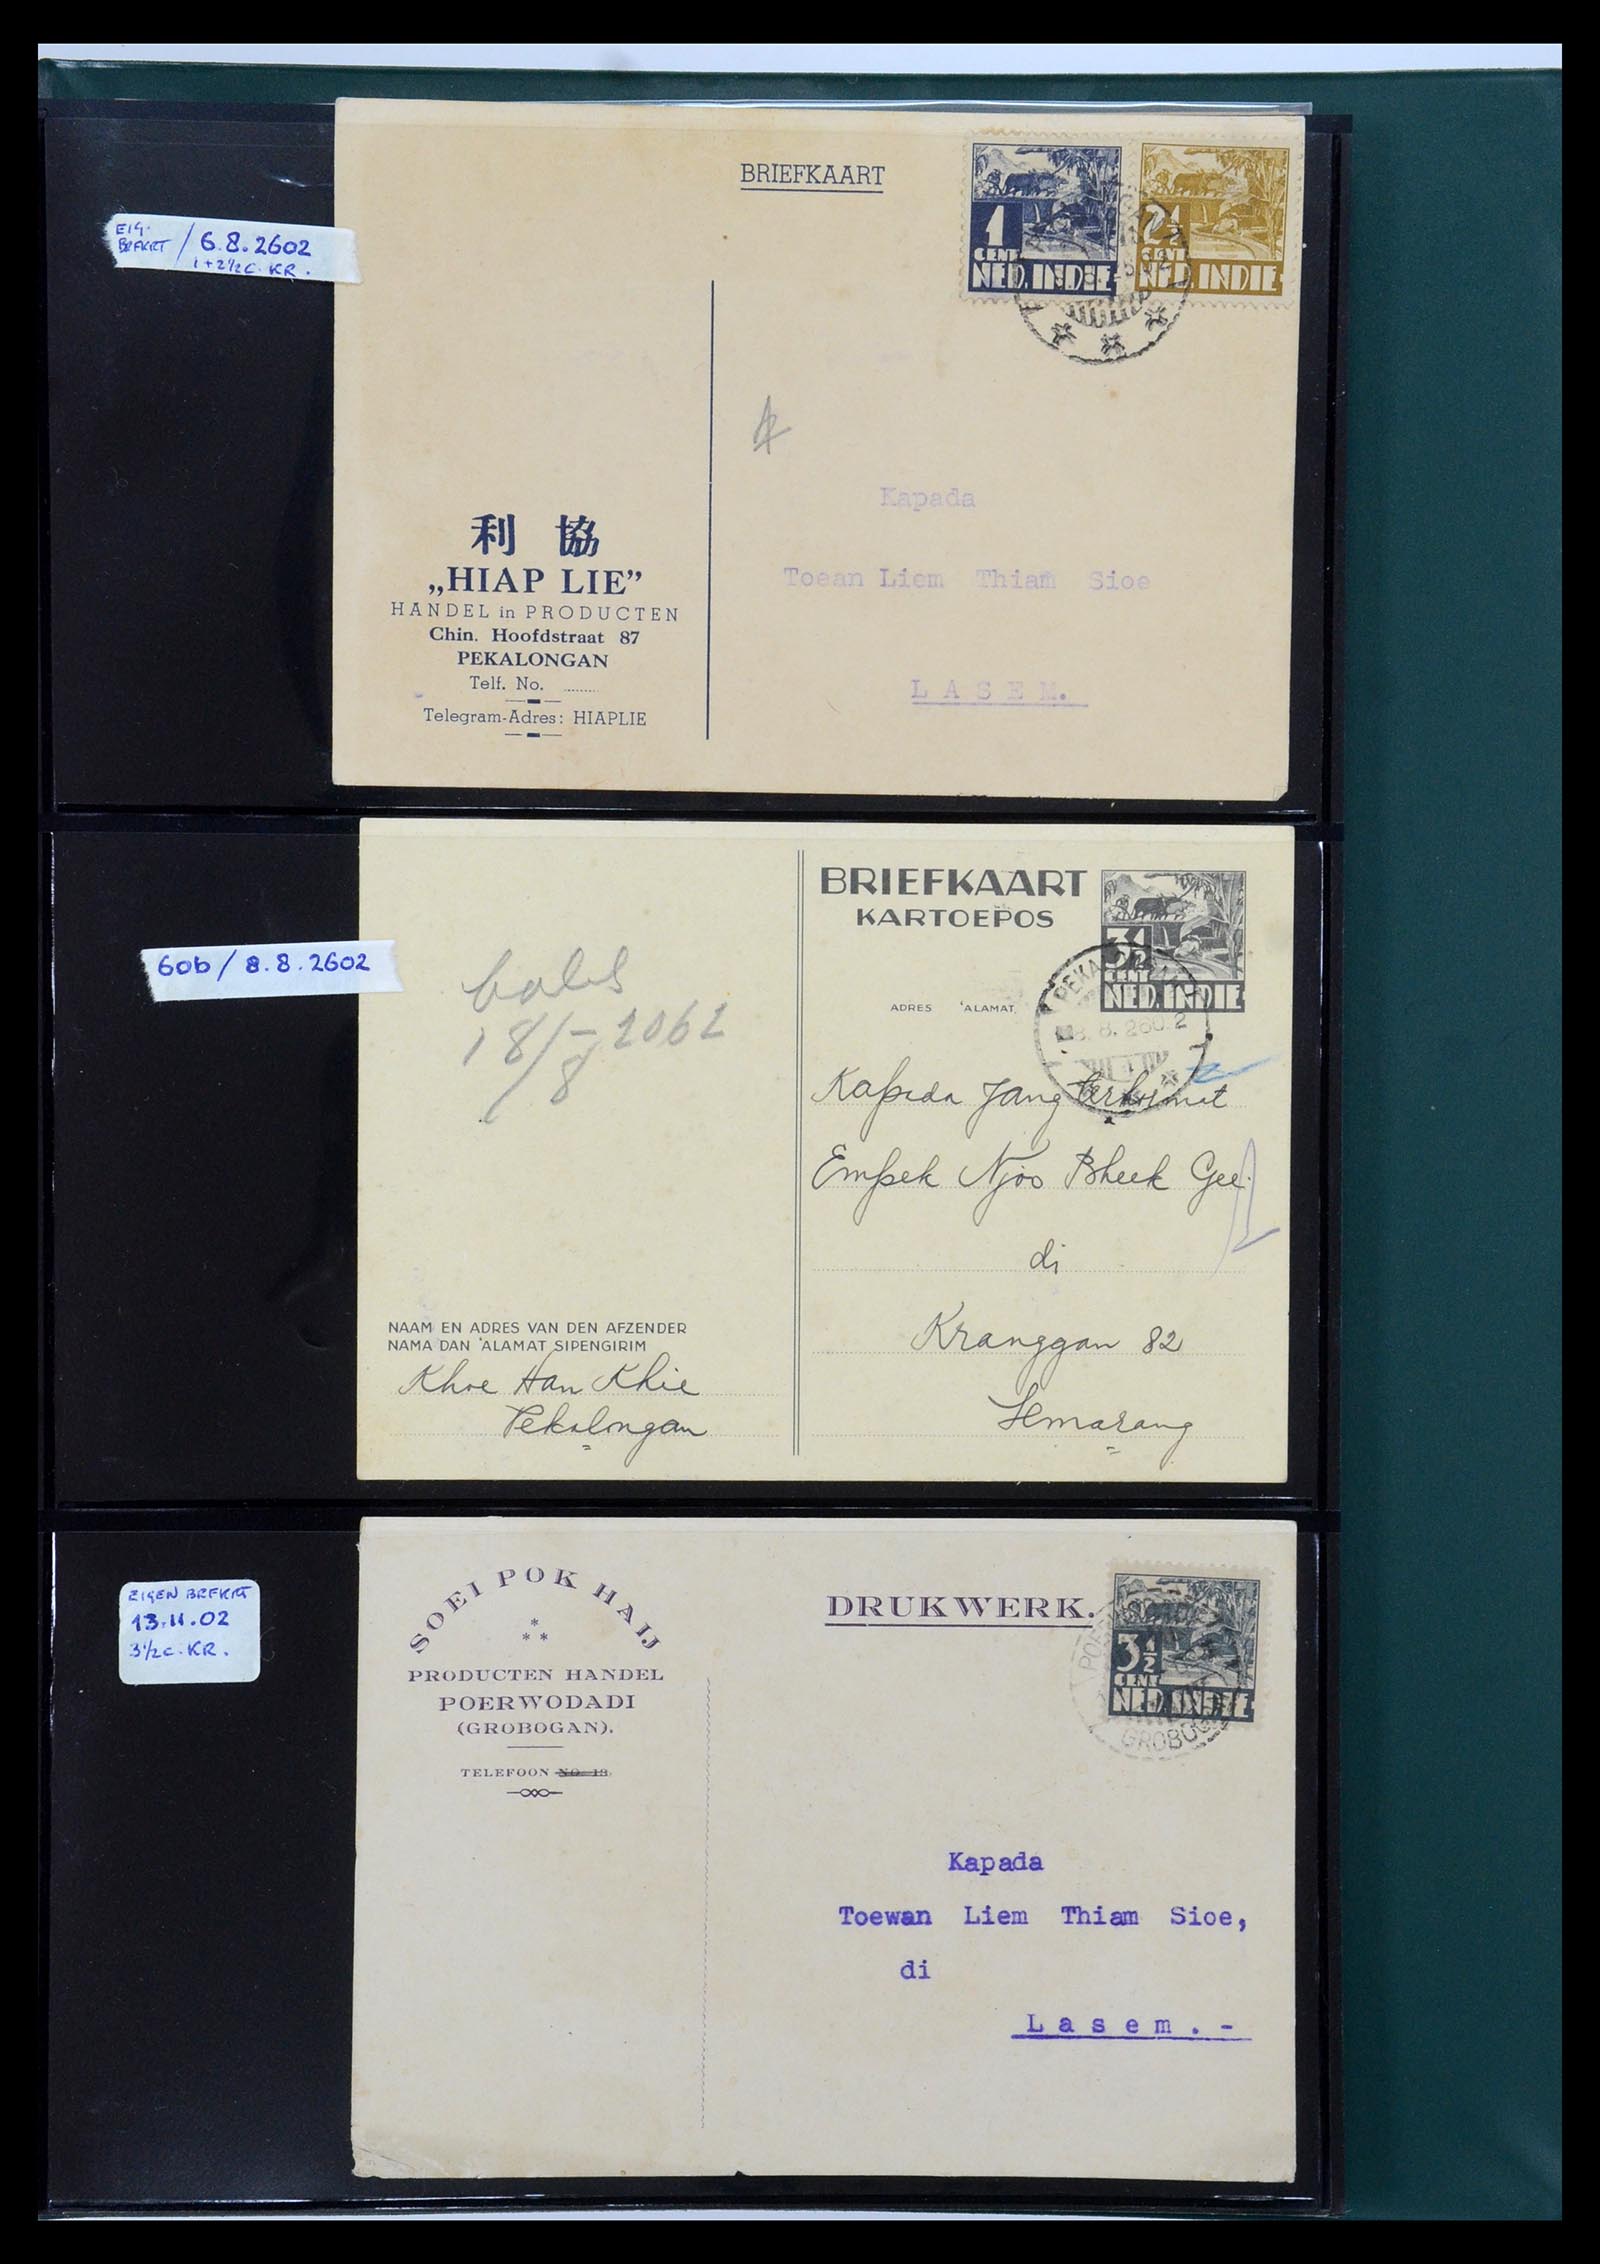 EIG.
BRFKRT / 6.8.2602
1+2½C. KR.
BRIEFKAART
1
CENT
NED. INDIE
2½
CENT
NED. INDIE
利 協
„HIAP LIE”
HANDEL in PRODUCTEN
Chin. Hoofdstraat 87
PEKALONGAN
Telf. No. ........
Telegram-Adres: HIAPLIE
Kapada
Toean Liem Thiam Sioe
LASEM.
60b / 8.8.2602
BRIEFKAART
KARTOEPOS
3½
CENT
NED. INDIE
ADRES 'ALAMAT
8.8.2602
18/8-2062
Kapada Jang terhormat
Empek Njoo Bheek Gee.
di
Kranggan 82
Semarang
NAAM EN ADRES VAN DEN AFZENDER
NAMA DAN 'ALAMAT SIPENGIRIM
Khoe Han Khie
Pekalongan
EIGEN BRFKRT
13.11.02
3½C. KR.
SOEI POK HAIJ
PRODUCTEN HANDEL
POERWODADI
(GROBOGAN).
TELEFOON NO. 13
DRUKWERK.
3½
CENT
NED. INDIE
Kapada
Toewan Liem Thiam Sioe,
di
Lasem.-